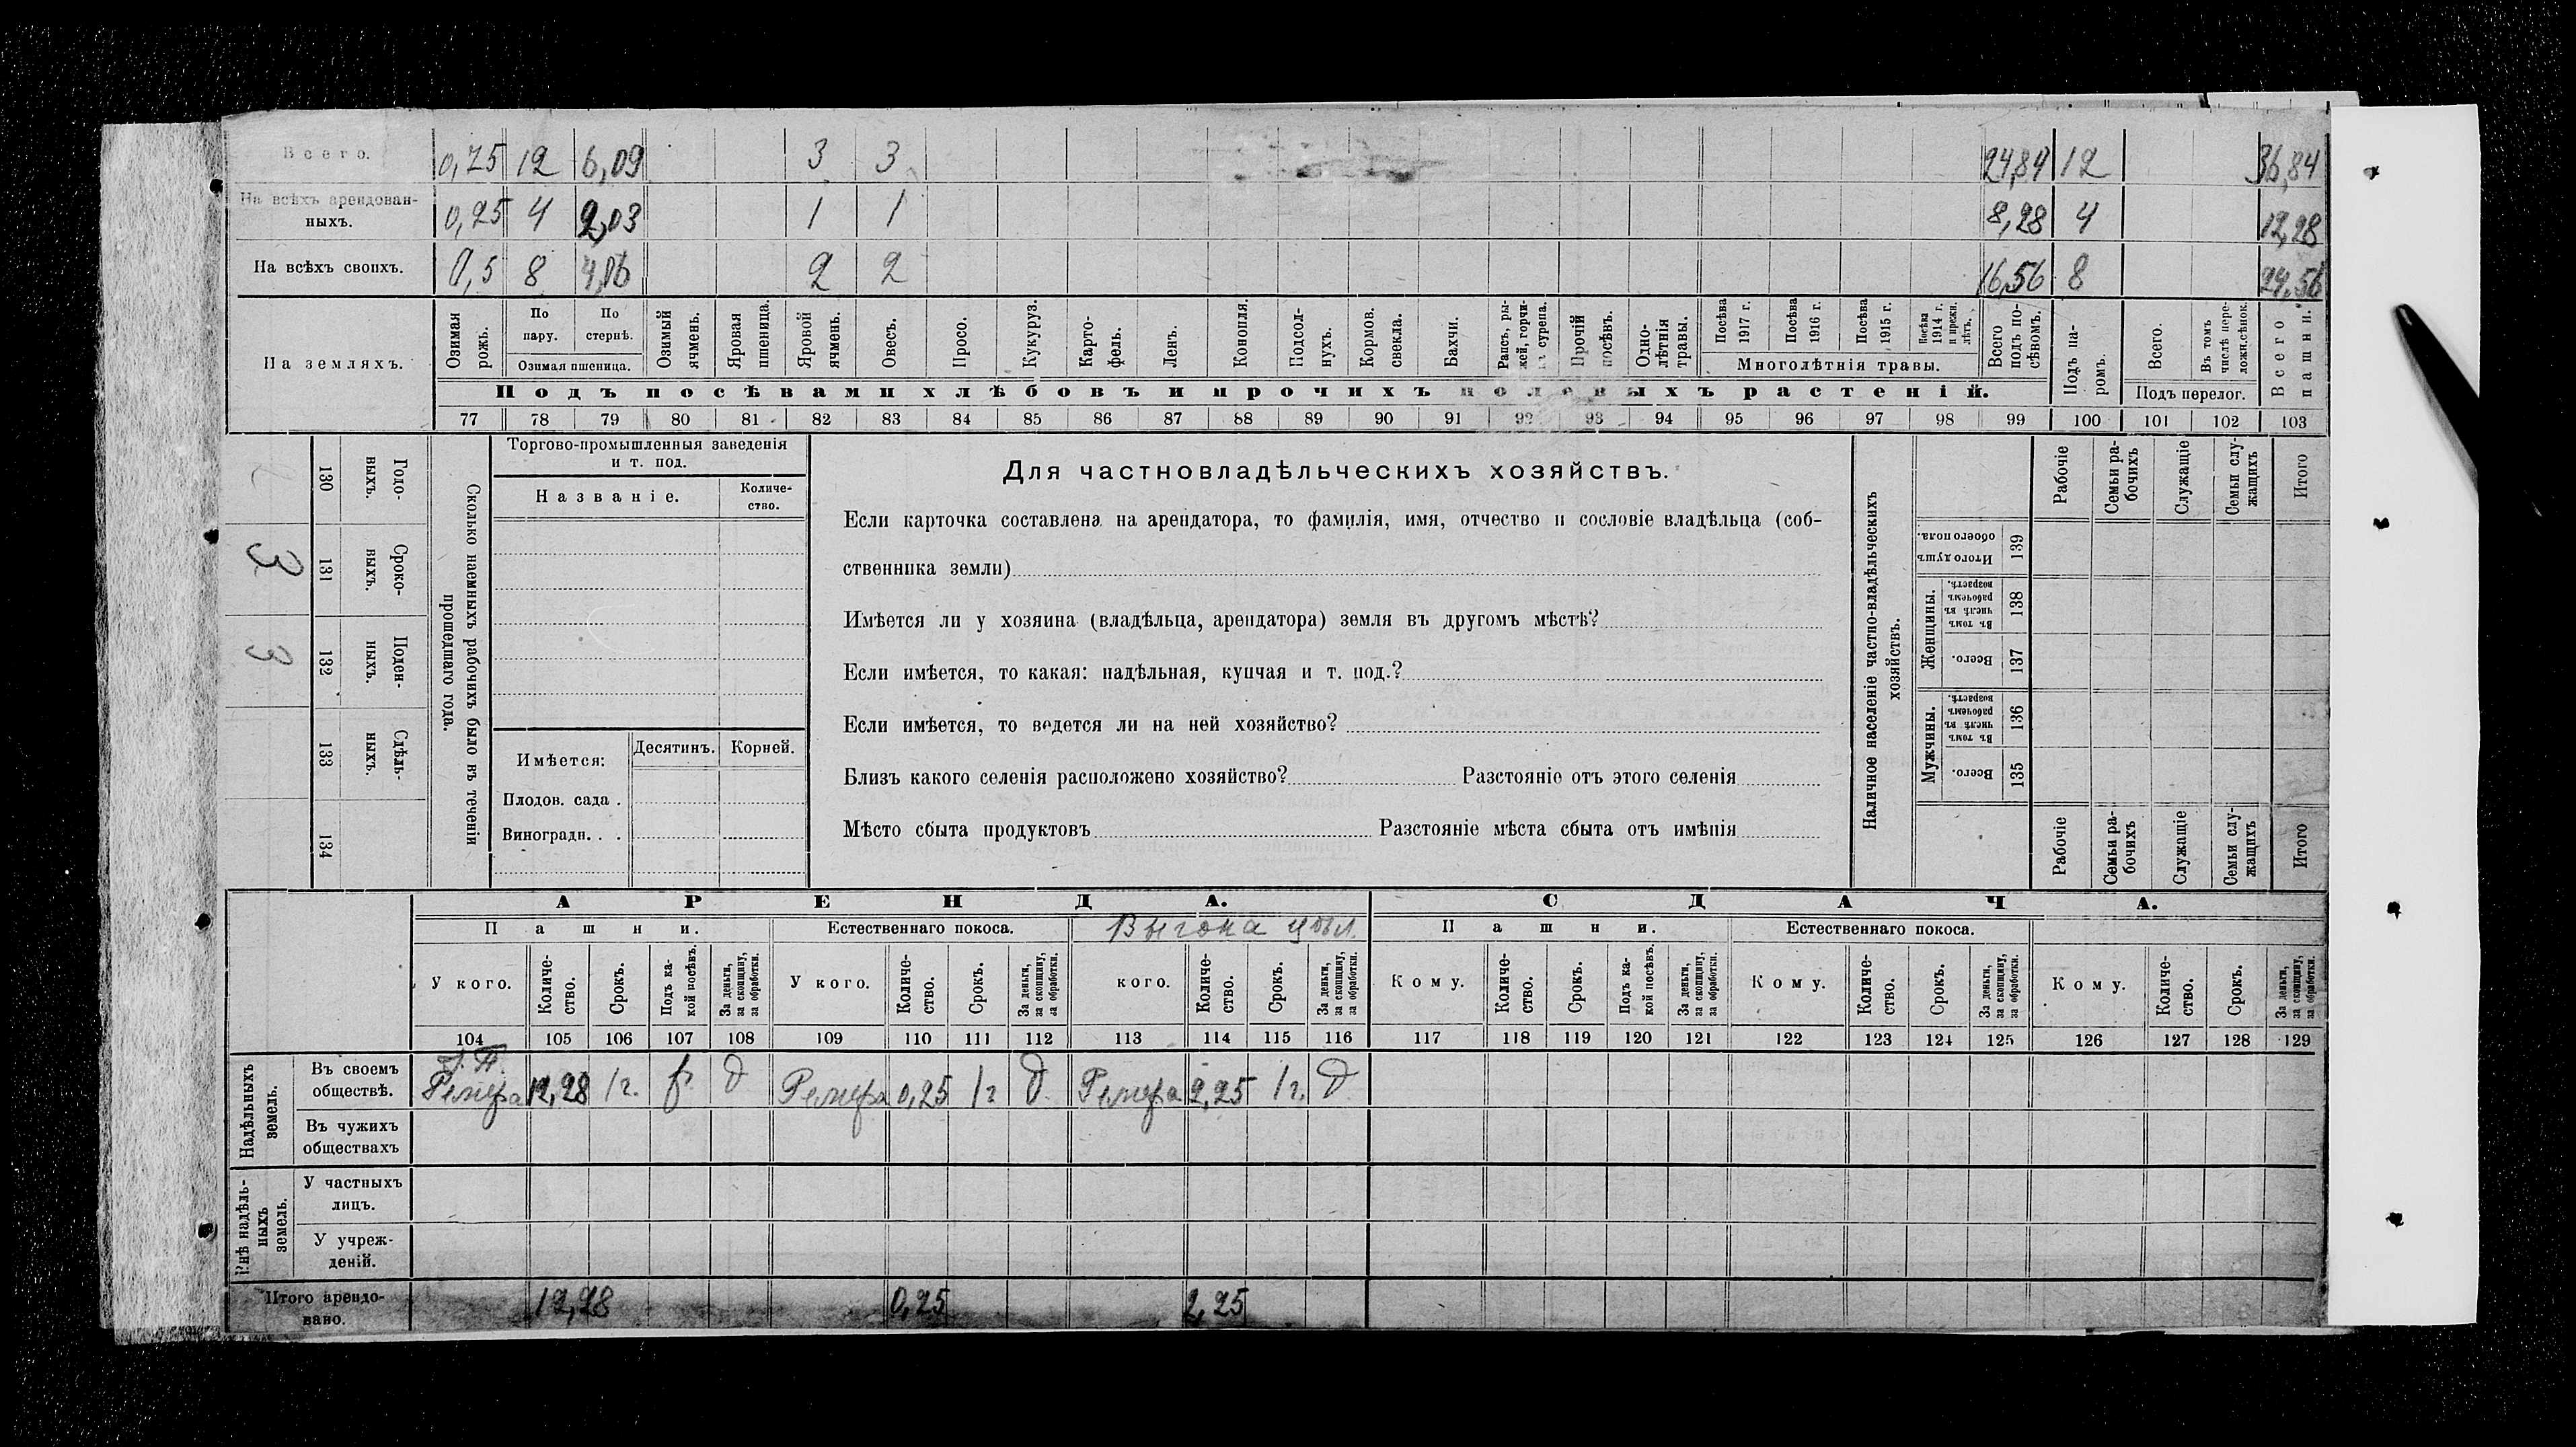 Всего. 0,75 12 6,09 3 3 24,84 12 36,84
На всѣхъ арендован-
ныхъ. 0,25 4 2,03 1 1 8,28 4 12,28
На всѣхъ своихъ. 0,5 8 4,06 2 2 16,56 8 24,56
На земляхъ.
Озимая рожь.
По пару.
По стернѣ.
Озимая пшеница.
Озимый ячмень.
Яровая пшеница.
Яровой ячмень.
Овесъ.
Просо.
Кукуруз.
Карто-
фель.
Ленъ.
Конопля.
Подсол-
нухъ.
Кормов.
свекла.
Бахчи.
Рапсъ, ры-
жей, горчи-
сурепа.
Прочій
посѣвъ.
Одно-
лѣтнія
травы.
Посѣва 1917 г.
Посѣва 1916 г.
Посѣва 1915 г.
Посѣва 1914 г. и прежн. лѣтъ.
Многолѣтнія травы.
Всего подъ по-
сѣвомъ.
Подъ па-
ромъ.
Всего.
Въ томъ числѣ пере-
ложн. сѣнок.
Подъ перелог.
Всего пашни.
Подъ посѣвами хлѣбовъ и прочихъ полевыхъ растеній.
77 78 79 80 81 82 83 84 85 86 87 88 89 90 91 92 93 94 95 96 97 98 99 100 101 102 103
Сколько наемныхъ рабочихъ было въ теченіи
прошедшаго года.
Годо-
выхъ.
130
Сроко-
выхъ.
131
3
Поден-
ныхъ.
132
3
Сдѣль-
ныхъ.
133
134
Торгово-промышленныя заведенія
и т. под.
Названіе.
Количе-
ство.
Имѣется:
Десятинъ.
Корней.
Плодов. сада .
Виноградн. . .
Для частновладѣльческихъ хозяйствъ.
Если карточка составлена на арендатора, то фамилія, имя, отчество и сословіе владѣльца (соб-
ственника земли)
Имѣется ли у хозяина (владѣльца, арендатора) земля въ другомъ мѣстѣ?
Если имѣется, то какая: надѣльная, купчая и т. под.?
Если имѣется, то ведется ли на ней хозяйство?
Близъ какого селенія расположено хозяйство? Разстояніе отъ этого селенія
Мѣсто сбыта продуктовъ Разстояніе мѣста сбыта отъ имѣнія
Наличное населеніе частно-владѣльческихъ
хозяйствъ.
Рабочіе
Семьи ра-
бочихъ
Служащіе
Семьи слу-
жащихъ
Итого
Итого душъ
обоего пола.
139
Женщины.
Въ томъ числѣ въ рабочемъ возрастѣ.
138
Всего.
137
Мужчины.
Въ томъ числѣ въ рабочемъ возрастѣ.
136
Всего.
135
Рабочіе
Семьи ра-
бочихъ
Служащіе
Семьи слу-
жащихъ
Итого
АРЕНДА. СДАЧА.
Пашни. Естественнаго покоса. Выгона Пашни. Естественнаго покоса.
У кого.
Количе-
ство.
Срокъ.
Подъ ка-
кой посѣвъ.
За деньги,
за скопщину,
за обработки.
У кого.
Количе-
ство.
Срокъ.
За деньги,
за скопщину,
за обработки.
кого.
Количе-
ство.
Срокъ.
За деньги,
за скопщину,
за обработки.
Кому.
Количе-
ство.
Срокъ.
Подъ ка-
кой посѣвъ.
За деньги,
за скопщину,
за обработки.
Кому.
Количе-
ство.
Срокъ.
За деньги,
за скопщину,
за обработки.
Кому.
Количе-
ство.
Срокъ.
За деньги,
за скопщину,
за обработки.
104 105 106 107 108 109 110 111 112 113 114 115 116 117 118 119 120 121 122 123 124 125 126 127 128 129
Надѣльныхъ
земель.
Въ своемъ
обществѣ. 12,28 1 г. д 0,25 1 г д. 2,25 1 г. д
Въ чужихъ
обществахъ
Внѣ надѣль-
ныхъ
земель.
У частныхъ
лицъ.
У учреж-
деній.
Итого арендо-
вано. 12,28 0,25 2,25